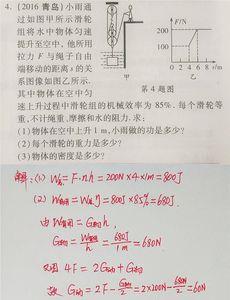 4. (2016 青岛)小雨通
过如图甲所示滑轮
组将水中物体匀速
提升至空中,他所用
拉力 F 与绳子自由
端移动的距离 s 的关
系图像如图乙所示.
其中物体在空中匀
F/N
200
100
0 2 4 6 8 s/m
甲
乙
第 4 题图
速上升过程中滑轮组的机械效率为 85%. 每个滑轮等
重,不计绳重、摩擦和水的阻力. 求:
(1)物体在空中上升 1 m,小雨做的功是多少?
(2)每个滑轮的重力是多少?
(3)物体的密度是多少?
解:(1) W总=F·nh=200N×4×1m=800J
(2) W有用=W总η=800J×85%=680J.
由 W有用=G物h,
G物=W有用/h=680J/1m=680N
又因 4F=2G动+G物
故 G动=2F-G物/2=2×200N-680N/2=60N